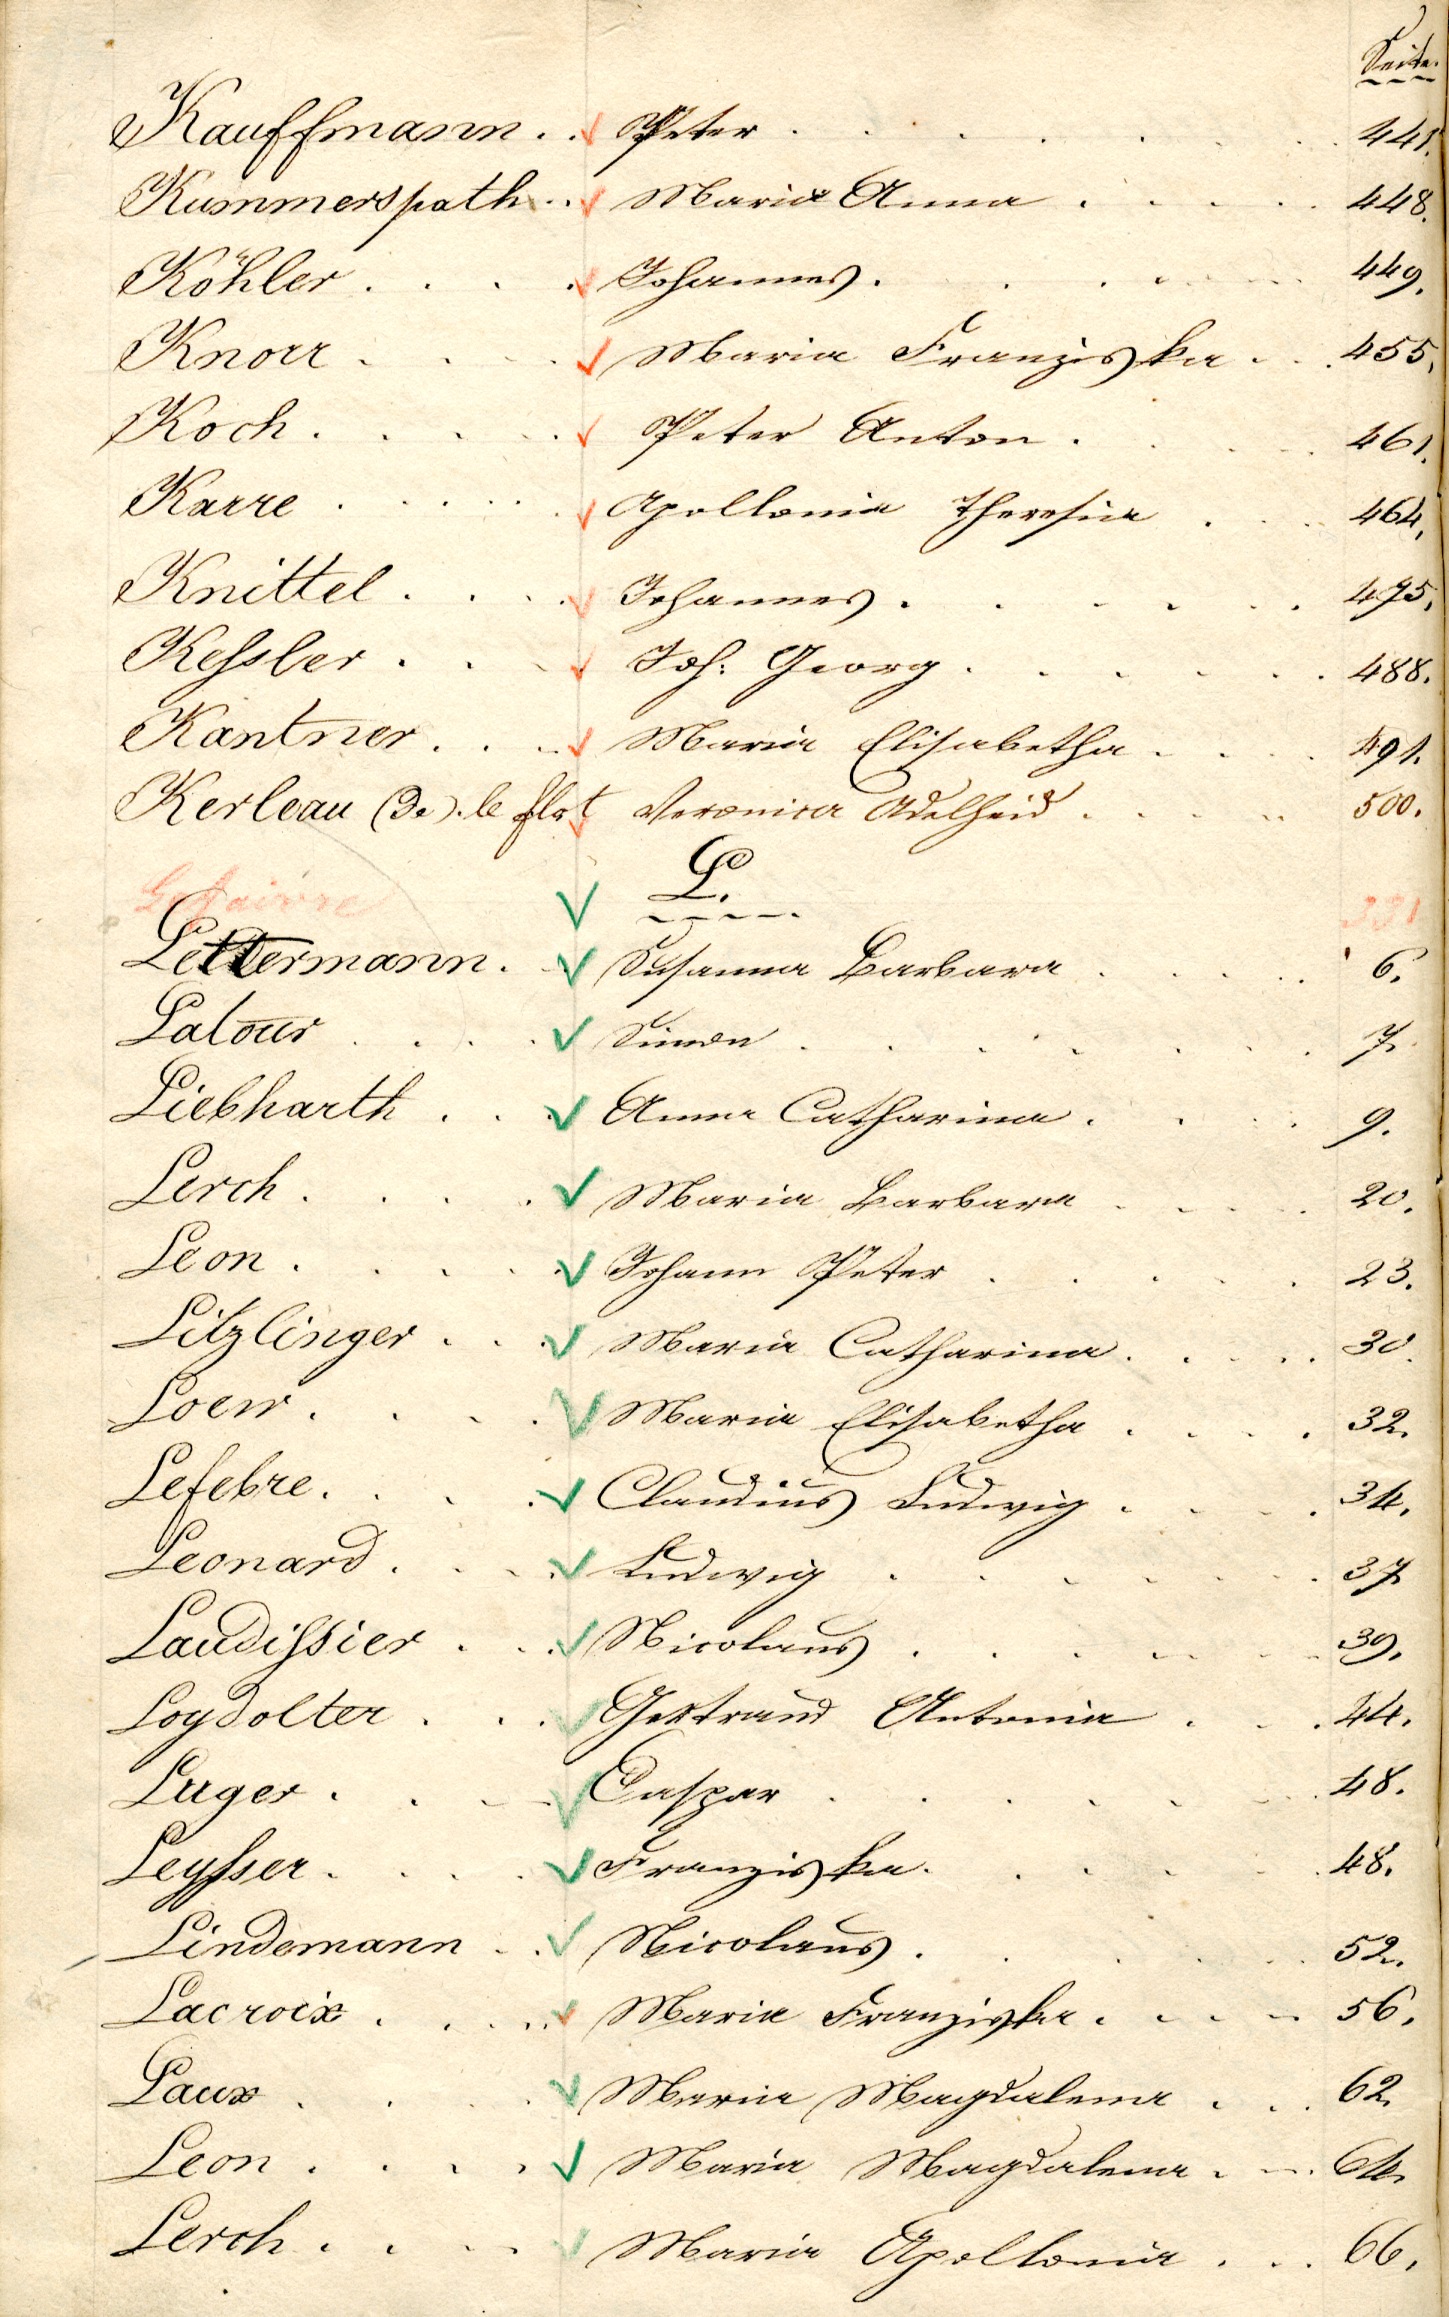 Seite.
Kauffmann . . Peter . . . . . . 441.
Kummerspath . . Maria Anna . . . . . 448.
Köhler . . . . Johannes . . . . . . 449.
Knorr . . . . Maria Franziska . . . 455.
Koch . . . . . Peter Anton . . . . 461.
Karre . . . . . Apollonia Theresia . . . 464.
Knittel . . . . Johannes . . . . . . 475.
Keſsler . . . . Joh: Georg . . . . . . 488.
Kantner . . . Maria Elisabetha . . . . 491.
Kerleau (De) le flot Veronica Adelheid . . . . 500.
L.
Lefaivre 331
Lettermann . . Susanna Barbara . . . . 6.
Latour . . . . Simon . . . . . . . 7.
Liebharth . . . Anna Catharina . . . . 9.
Lerch . . . . Maria Barbara . . . . 20.
Leon . . . . . Johann Peter . . . . . 23.
Litzlinger . . . Maria Catharina . . . . . 30.
Loew . . . . Maria Elisabetha . . . . 32.
Lefebre . . . . Claudius Ludwig . . . . 34.
Leonard . . . . Ludwig . . . . . . . 37.
Laudiſsier . . . Nicolaus . . . . . . 39.
Loydolter . . . Gertraud Antonia . . . 44.
Luger . . . . Caspar . . . . . . . 48.
Leyſser . . . . Franziska . . . . . . 48.
Lindemann . . Nicolaus . . . . . . 52.
Lacroix . . . . Maria Franziska . . . . 56.
Laux . . . . Maria Magdalena . . . 62.
Leon . . . . Maria Magdalena . . . 64.
Lerch . . . . Maria Apollonia . . . 66.